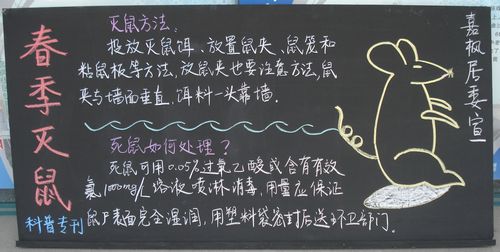 春季灭鼠
科普专刊
灭鼠方法:
投放灭鼠饵、放置鼠夹、鼠笼和
粘鼠板等方法,放鼠夹也要注意方法,鼠
夹与墙面垂直,饵料一头靠墙.
死鼠如何处理?
死鼠可用0.05%过氧乙酸或含有有效
氯1000mg/L溶液喷淋消毒,用量应保证
鼠尸表面完全湿润,用塑料袋密封后送环卫部门.
嘉枫居委宣